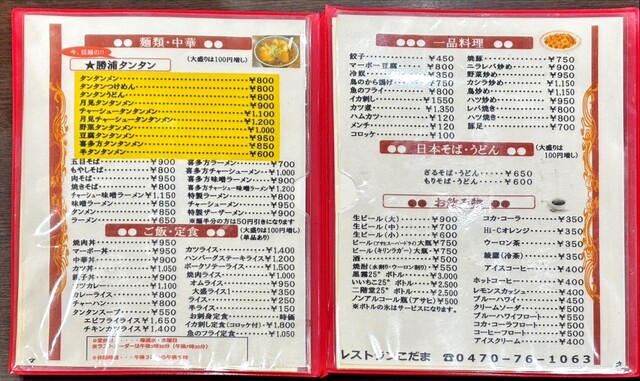 麺類・中華
今、話題の!!
★勝浦タンタン (大盛りは100円増し)
タンタンメン ¥800
タンタンつけめん ¥800
タンタンうどん ¥800
月見タンタンメン ¥900
チャーシュータンタンメン ¥1,100
月見チャーシュータンタンメン ¥1,200
野菜タンタンメン ¥1,000
豆腐タンタンメン ¥950
喜多方タンタンメン ¥850
半タンタンメン ¥600
五目そば ¥900
もやしそば ¥800
肉そば ¥950
焼きそば ¥800
チャーシュー味噌ラーメン ¥1,150
味噌ラーメン ¥850
タンメン ¥850
ラーメン ¥650
喜多方ラーメン ¥700
喜多方チャーシューメン ¥1,000
喜多方味噌ラーメン ¥900
喜多方チャーシュー味噌ラーメン ¥1,200
特製ラーメン ¥800
チャーシューメン ¥950
特製ザーザーメン ¥900
※麺半分の方は50円引きになります
ご飯・定食 (大盛りは100円増し) (単品あり)
焼肉丼 ¥950
マーボー丼 ¥900
中華丼 ¥900
カツ丼 ¥1,050
親子丼 ¥900
カツカレー ¥1,050
カレーライス ¥800
チャーハン ¥800
タンタンスープ ¥550
エビフライライス ¥1,650
チキンカツライス ¥1,400
カツライス ¥1,400
ハンバーグステーキライス ¥1,200
ポークソテーライス ¥1,500
焼肉ライス ¥1,350
オムライス ¥950
大盛ライス ¥350
ライス ¥250
半ライス ¥150
お刺身定食 時価
イカ刺し定食(コロッケ付) ¥1,800
魚のフライ定食 ¥1,050
一品料理
餃子 ¥450
マーボー豆腐 ¥800
冷奴 ¥350
鳥のから揚げ ¥750
魚のフライ ¥600
イカ刺し ¥1,550
カツ煮 ¥1,350
ハムカツ ¥200
メンチ ¥200
コロッケ ¥100
焼豚 ¥750
ニラレバ炒め ¥900
野菜炒め ¥950
カシラ炒め ¥1,150
鳥炒め ¥1,150
ハツ炒め ¥950
レバ焼き ¥800
ハツ焼き ¥800
豚足 ¥700
日本そば・うどん (大盛りは100円増し)
ざるそば・うどん ¥650
もりそば・うどん ¥600
お飲み物
生ビール(大) ¥900
生ビール(中) ¥700
生ビール(小) ¥600
ビール(アサヒスーパードライ)大瓶 ¥750
ビール(キリンラガー)大瓶 ¥750
酒 ¥500
焼酎(水割り・ウーロン割り) ¥550
黒霧25°ボトル ¥3,000
いいちこ25°ボトル ¥2,500
二階堂25°ボトル ¥2,500
ノンアルコール瓶(アサヒ) ¥500
※ボトルの氷はサービスになります。
コカ・コーラ ¥350
Hi-Cオレンジ ¥350
ウーロン茶 ¥350
綾鷹(冷茶) ¥350
アイスコーヒー ¥400
ホットコーヒー ¥400
レモンスカッシュ ¥400
ブルーハワイ ¥450
クリームソーダ ¥500
ブルーハワイフロート ¥550
コカ・コーラフロート ¥500
コーヒーフロート ¥500
アイスクリーム ¥400
レストランこだま ☎0470-76-1063